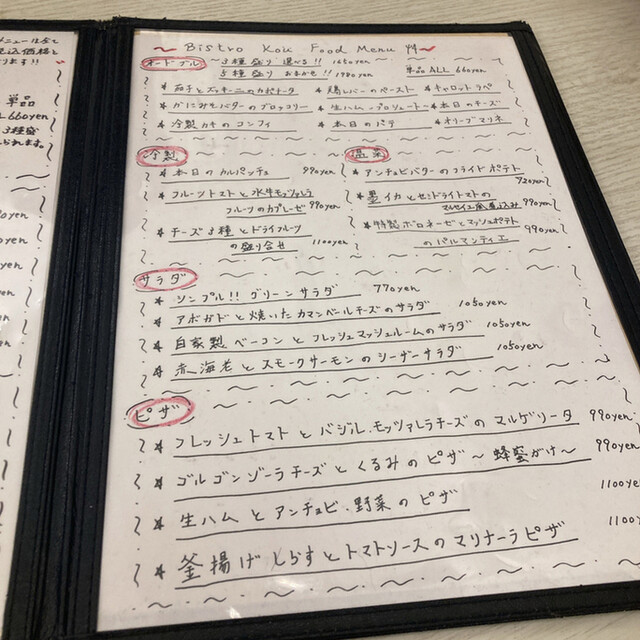 メニューは全て
税込価格と
ります!!
単品
660yen
3種盛
られます。
~ Bistro Kou Food Menu ~
オードブル ~3種盛り 選べる!! 1650yen
5種盛り おまかせ!! 1980yen 単品 ALL 660yen
* 茄子とズッキーニのカポナータ * 鶏レバーのペースト * キャロットラペ
* かにみそバターのブロッコリー * 生ハム・プロシュート * 本日のチーズ
* 冷製カキのコンフィ * 本日のパテ * オリーブマリネ
冷製
* 本日のカルパッチェ 990yen
* フルーツトマトと水牛モッツァレラ
フルーツのカプレーゼ 990yen
* チーズ3種とドライフルーツ
の盛り合せ 1100yen
温菜
* アンチョビバターのフライドポテト
920yen
* 墨イカとセミドライトマトの
マルセイユ風煮込み 990yen
* 特製ボロネーゼとマッシュポテト
のパルマンティエ 990yen
サラダ
* シンプル!! グリーンサラダ 770yen
* アボガドと焼いたカマンベールチーズのサラダ 1050yen
* 自家製ベーコンとフレッシュマッシュルームのサラダ 1050yen
* 赤海老とスモークサーモンのシーザーサラダ 1050yen
ピザ
* フレッシュトマトとバジル・モッツァレラチーズのマルゲリータ 990yen
* ゴルゴンゾーラチーズとくるみのピザ~蜂蜜がけ~ 990yen
* 生ハムとアンチョビ・野菜のピザ 1100yen
* 釜揚げしらすとトマトソースのマリナーラピザ 1100y